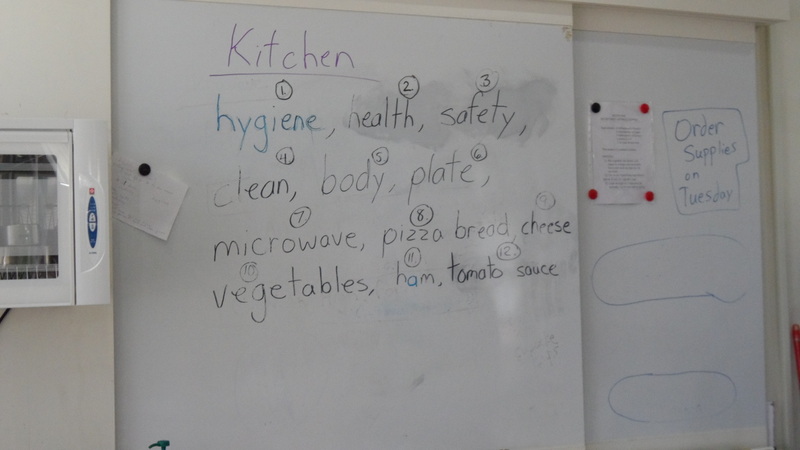 Kitchen
1. 2 3
hygiene, health, safety,
4 5 6
clean, body, plate,
7 8 9
microwave, pizza bread, cheese
10 11 12.
vegetables, ham, tomato sauce
Order
Supplies
on
Tuesday